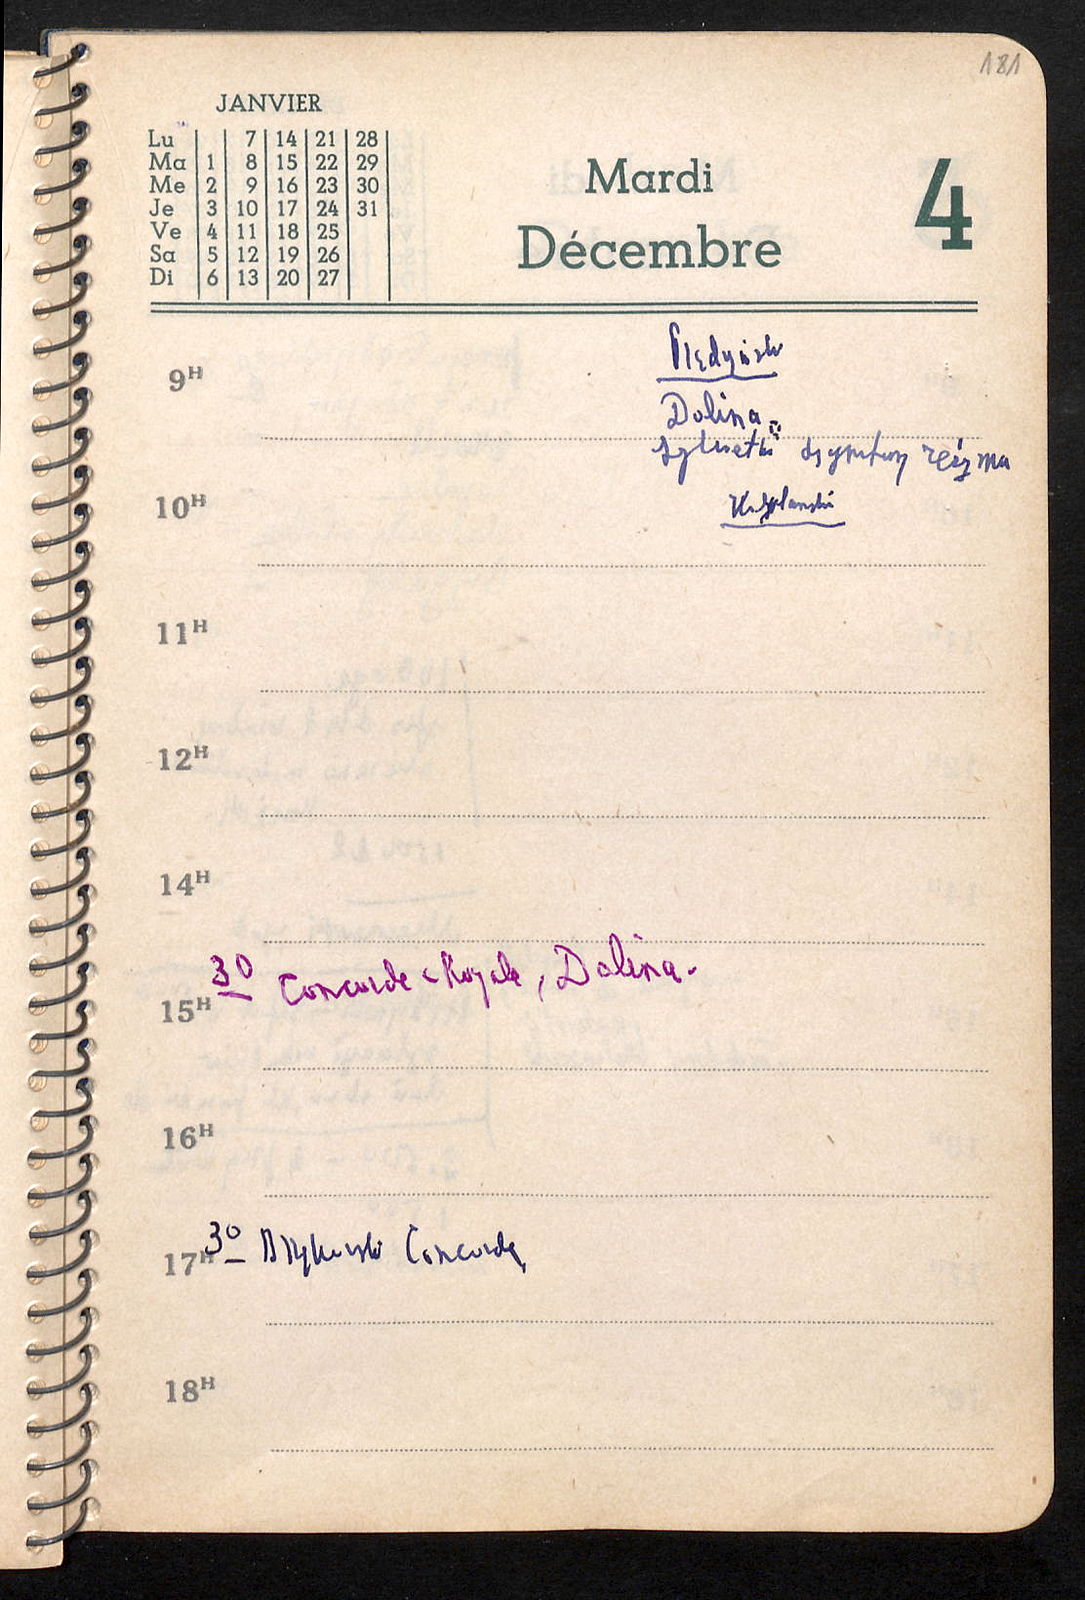 181
JANVIER
Lu 7 14 21 28
Ma 1 8 15 22 29
Me 2 9 16 23 30
Je 3 10 17 24 31
Ve 4 11 18 25
Sa 5 12 19 26
Di 6 13 20 27
Mardi 4
Décembre
9H
Dolina
10H
11H
12H
14H
30 Concorde Royale, Dolina
15H
16H
30 Concorde
17H
18H